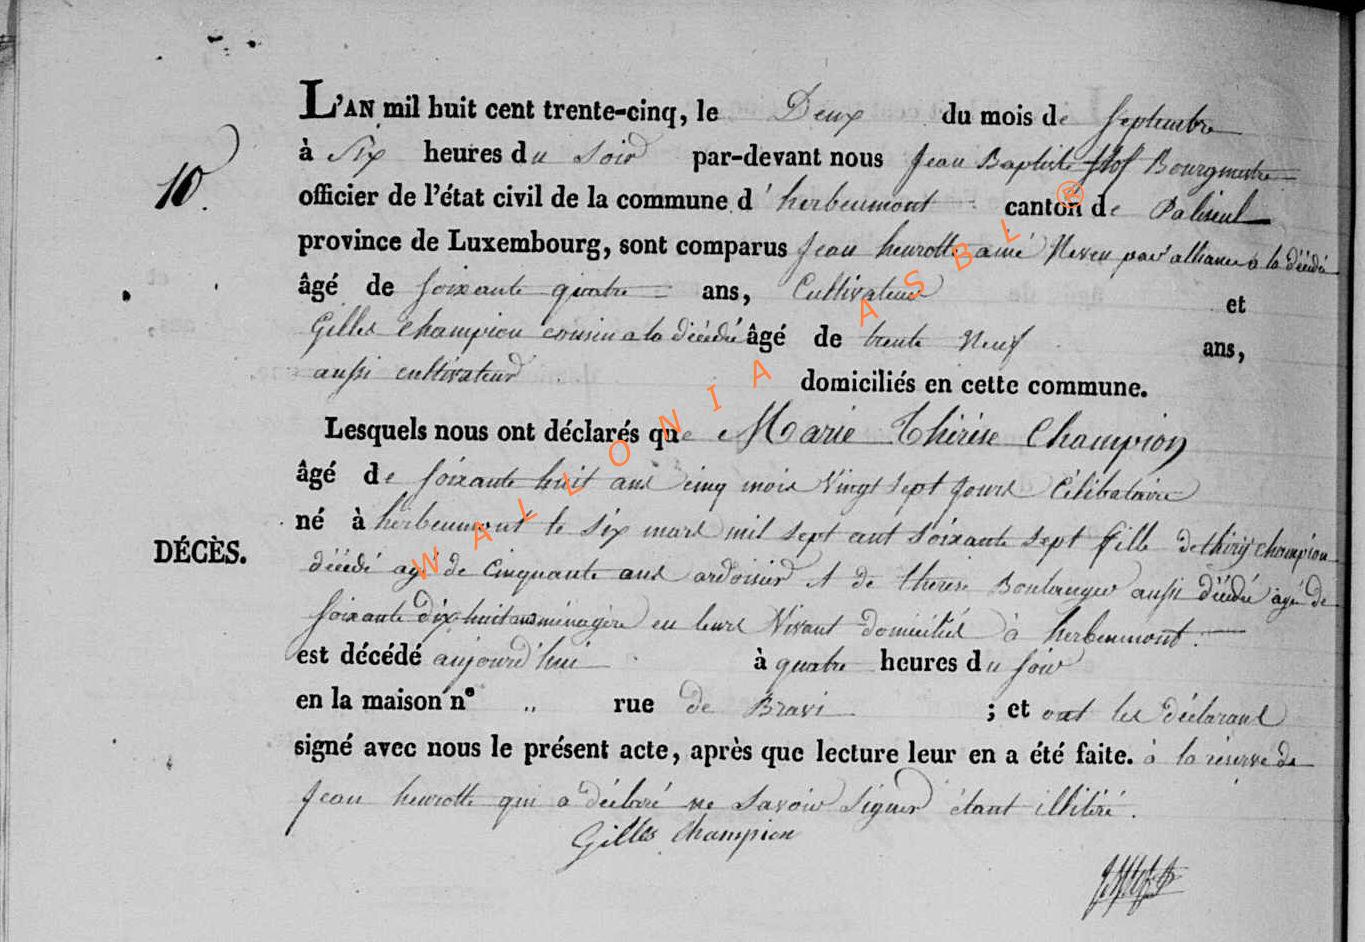 L'AN mil huit cent trente-cinq, le Deux du mois de Septembre
à Six heures du Soir par-devant nous Jean Baptiste Bourgmestre
officier de l'état civil de la commune d'herbeumont canton de Paliseul
province de Luxembourg, sont comparus Jean heurotte ainé Neveu par alliance a la décédé
âgé de soixante quatre ans, Cultivateur et
Gilles Champion cousin a la décédé âgé de trente Neuf ans,
aussi cultivateur domiciliés en cette commune.
10.
Lesquels nous ont déclarés que Marie Thérèse Champion
âgé de soixante huit ans cinq mois Vingt Sept jours Célibataire
né à herbeumont le six mars mil sept cent soixante sept fille de thiry champion
DÉCÈS.
décédé agé de Cinquante ans ardoisier et de therese Boulanger aussi décédée agé de
soixante dix huit ans ménagère en leurs Vivant domiciliés à herbeumont.
est décédé aujourd'hui à quatre heures du soir
en la maison n° „ rue de Bravi ; et ont les déclarans
signé avec nous le présent acte, après que lecture leur en a été faite. à la réserve de
Jean heurotte qui a déclaré ne Savoir Signer étant illitéré.
Gilles Champion
WALLONIA ASBL ®